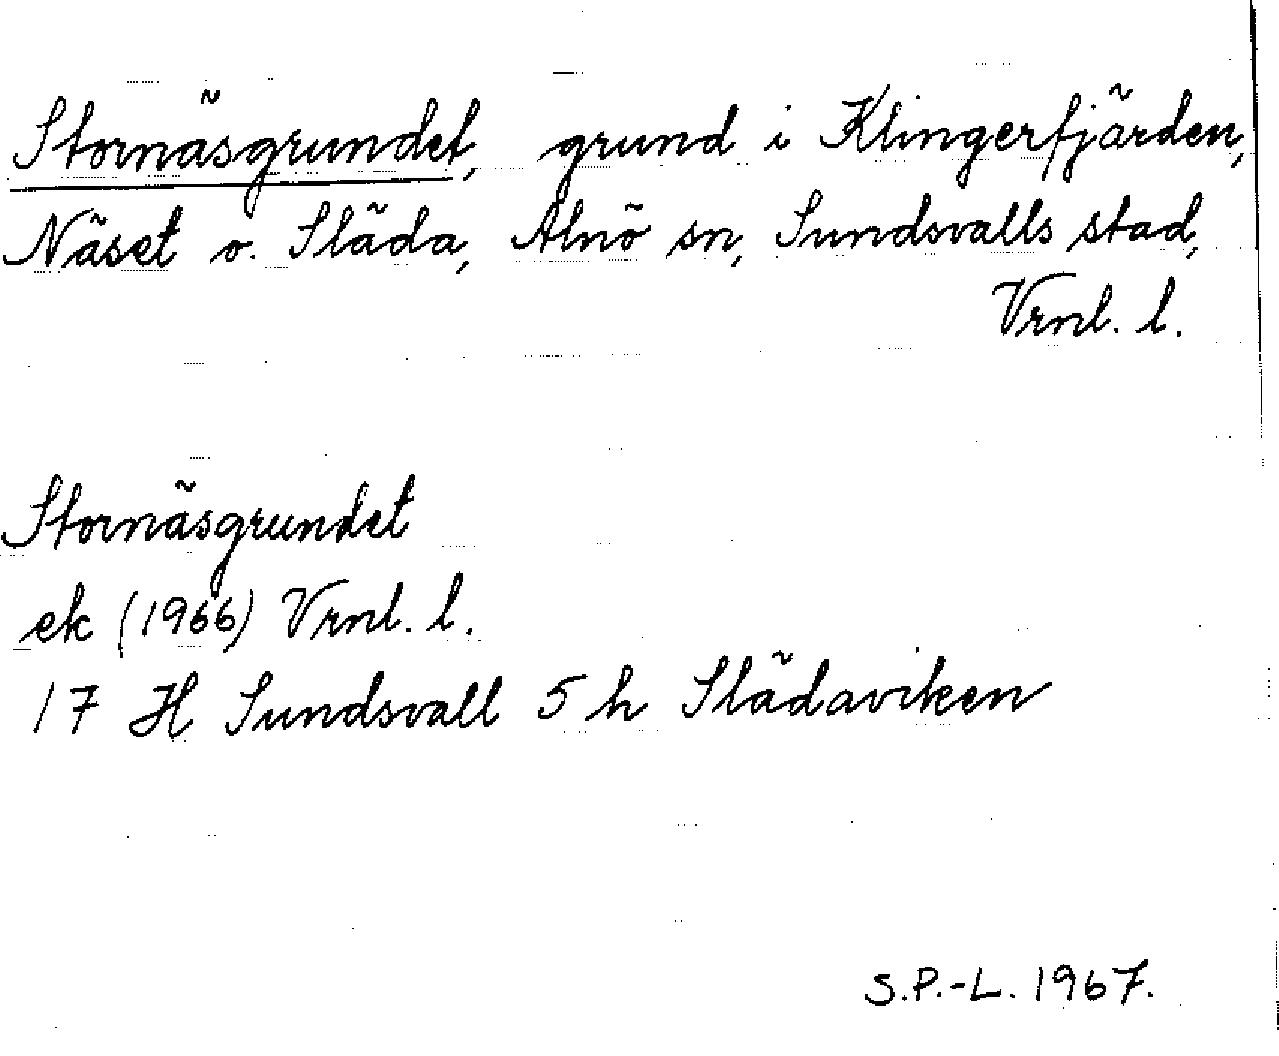 Stornäsgrundet, grund i Klingerfjärden,
Näset o. Släda, Alnö sn, Sundsvalls stad,
Vrnl. l.
Stornäsgrundet
ek (1966) Vrnl. l.
17 H Sundsvall 5 h Slädaviken
S.P.-L. 1967.